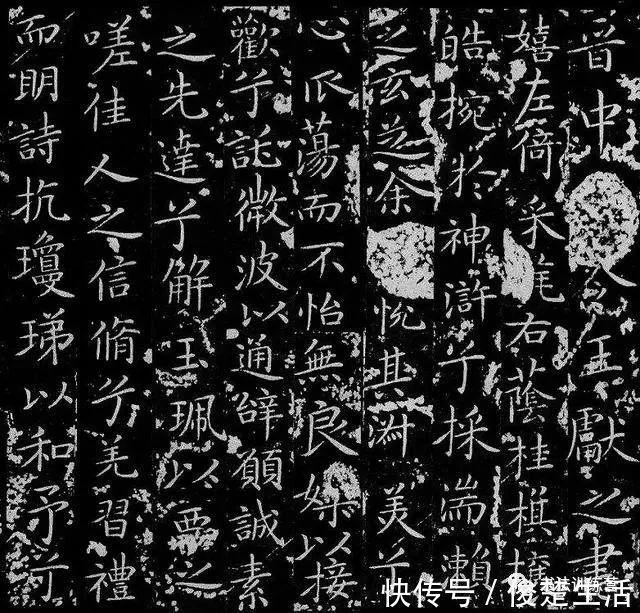 晉中令王獻之書
嬉左倚采旄右蔭桂旗攘
皓捥於神滸兮採湍瀨
之玄芝余悅其淑美兮
心振蕩而不怡無良媒以接
歡兮託微波以通辭願誠素
之先達兮解玉珮以要之
嗟佳人之信脩兮羌習禮
而明詩抗瓊珶以和予兮
快传号/生活